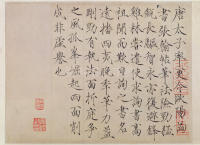 唐太子率更令歐陽詢
書張翰帖筆法險勁猛
銳長驅智永亦復避鋒
雞林嘗遣使求詢書高
祖聞而歎曰詢之書名
遠播四夷晚年筆力益
剛勁有執法面折廷爭
之風孤峯崛起四面削
成非虛譽也